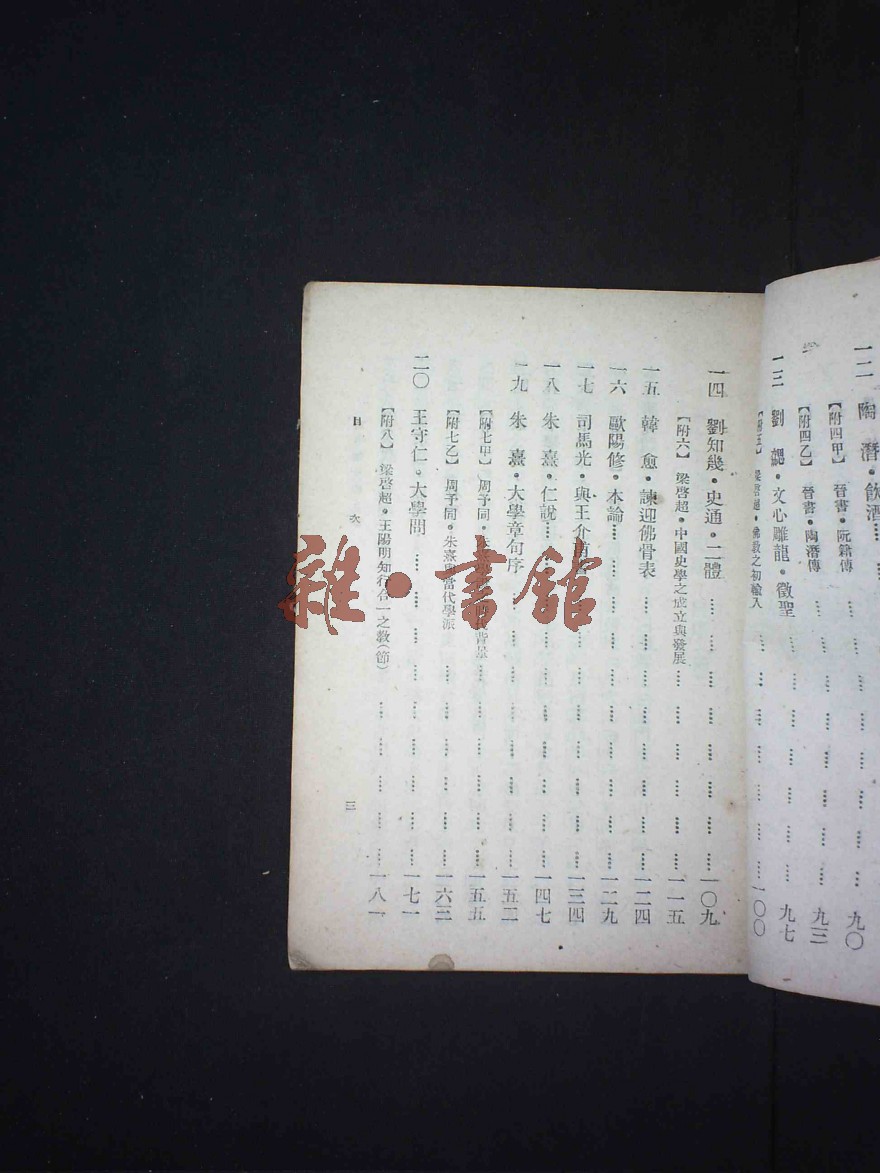 一二 陶潛·飲酒……
【附四甲】 晉書·阮籍傳 …… 九〇
【附四乙】 晉書·陶潛傳 …… 九三
一三 劉勰·文心雕龍·徵聖 …… 九七
【附五】 梁啓超·佛敎之初輸入 …… 一〇〇
一四 劉知幾·史通·二體 …… 一〇九
【附六】 梁啓超·中國史學之成立與發展 …… 一一五
一五 韓愈·諫迎佛骨表 …… 一二四
一六 歐陽修·本論 …… 一二九
一七 司馬光·與王介甫書 …… 一三四
一八 朱熹·仁說 …… 一四七
一九 朱熹·大學章句序 …… 一五二
【附七甲】 周予同·代背景 …… 一五五
【附七乙】 周予同·朱熹與當代學派 …… 一六三
二〇 王守仁·大學問 …… 一七一
【附八】 梁啓超·王陽明知行合一之敎(節) …… 一八一
目次
三
雜·書館